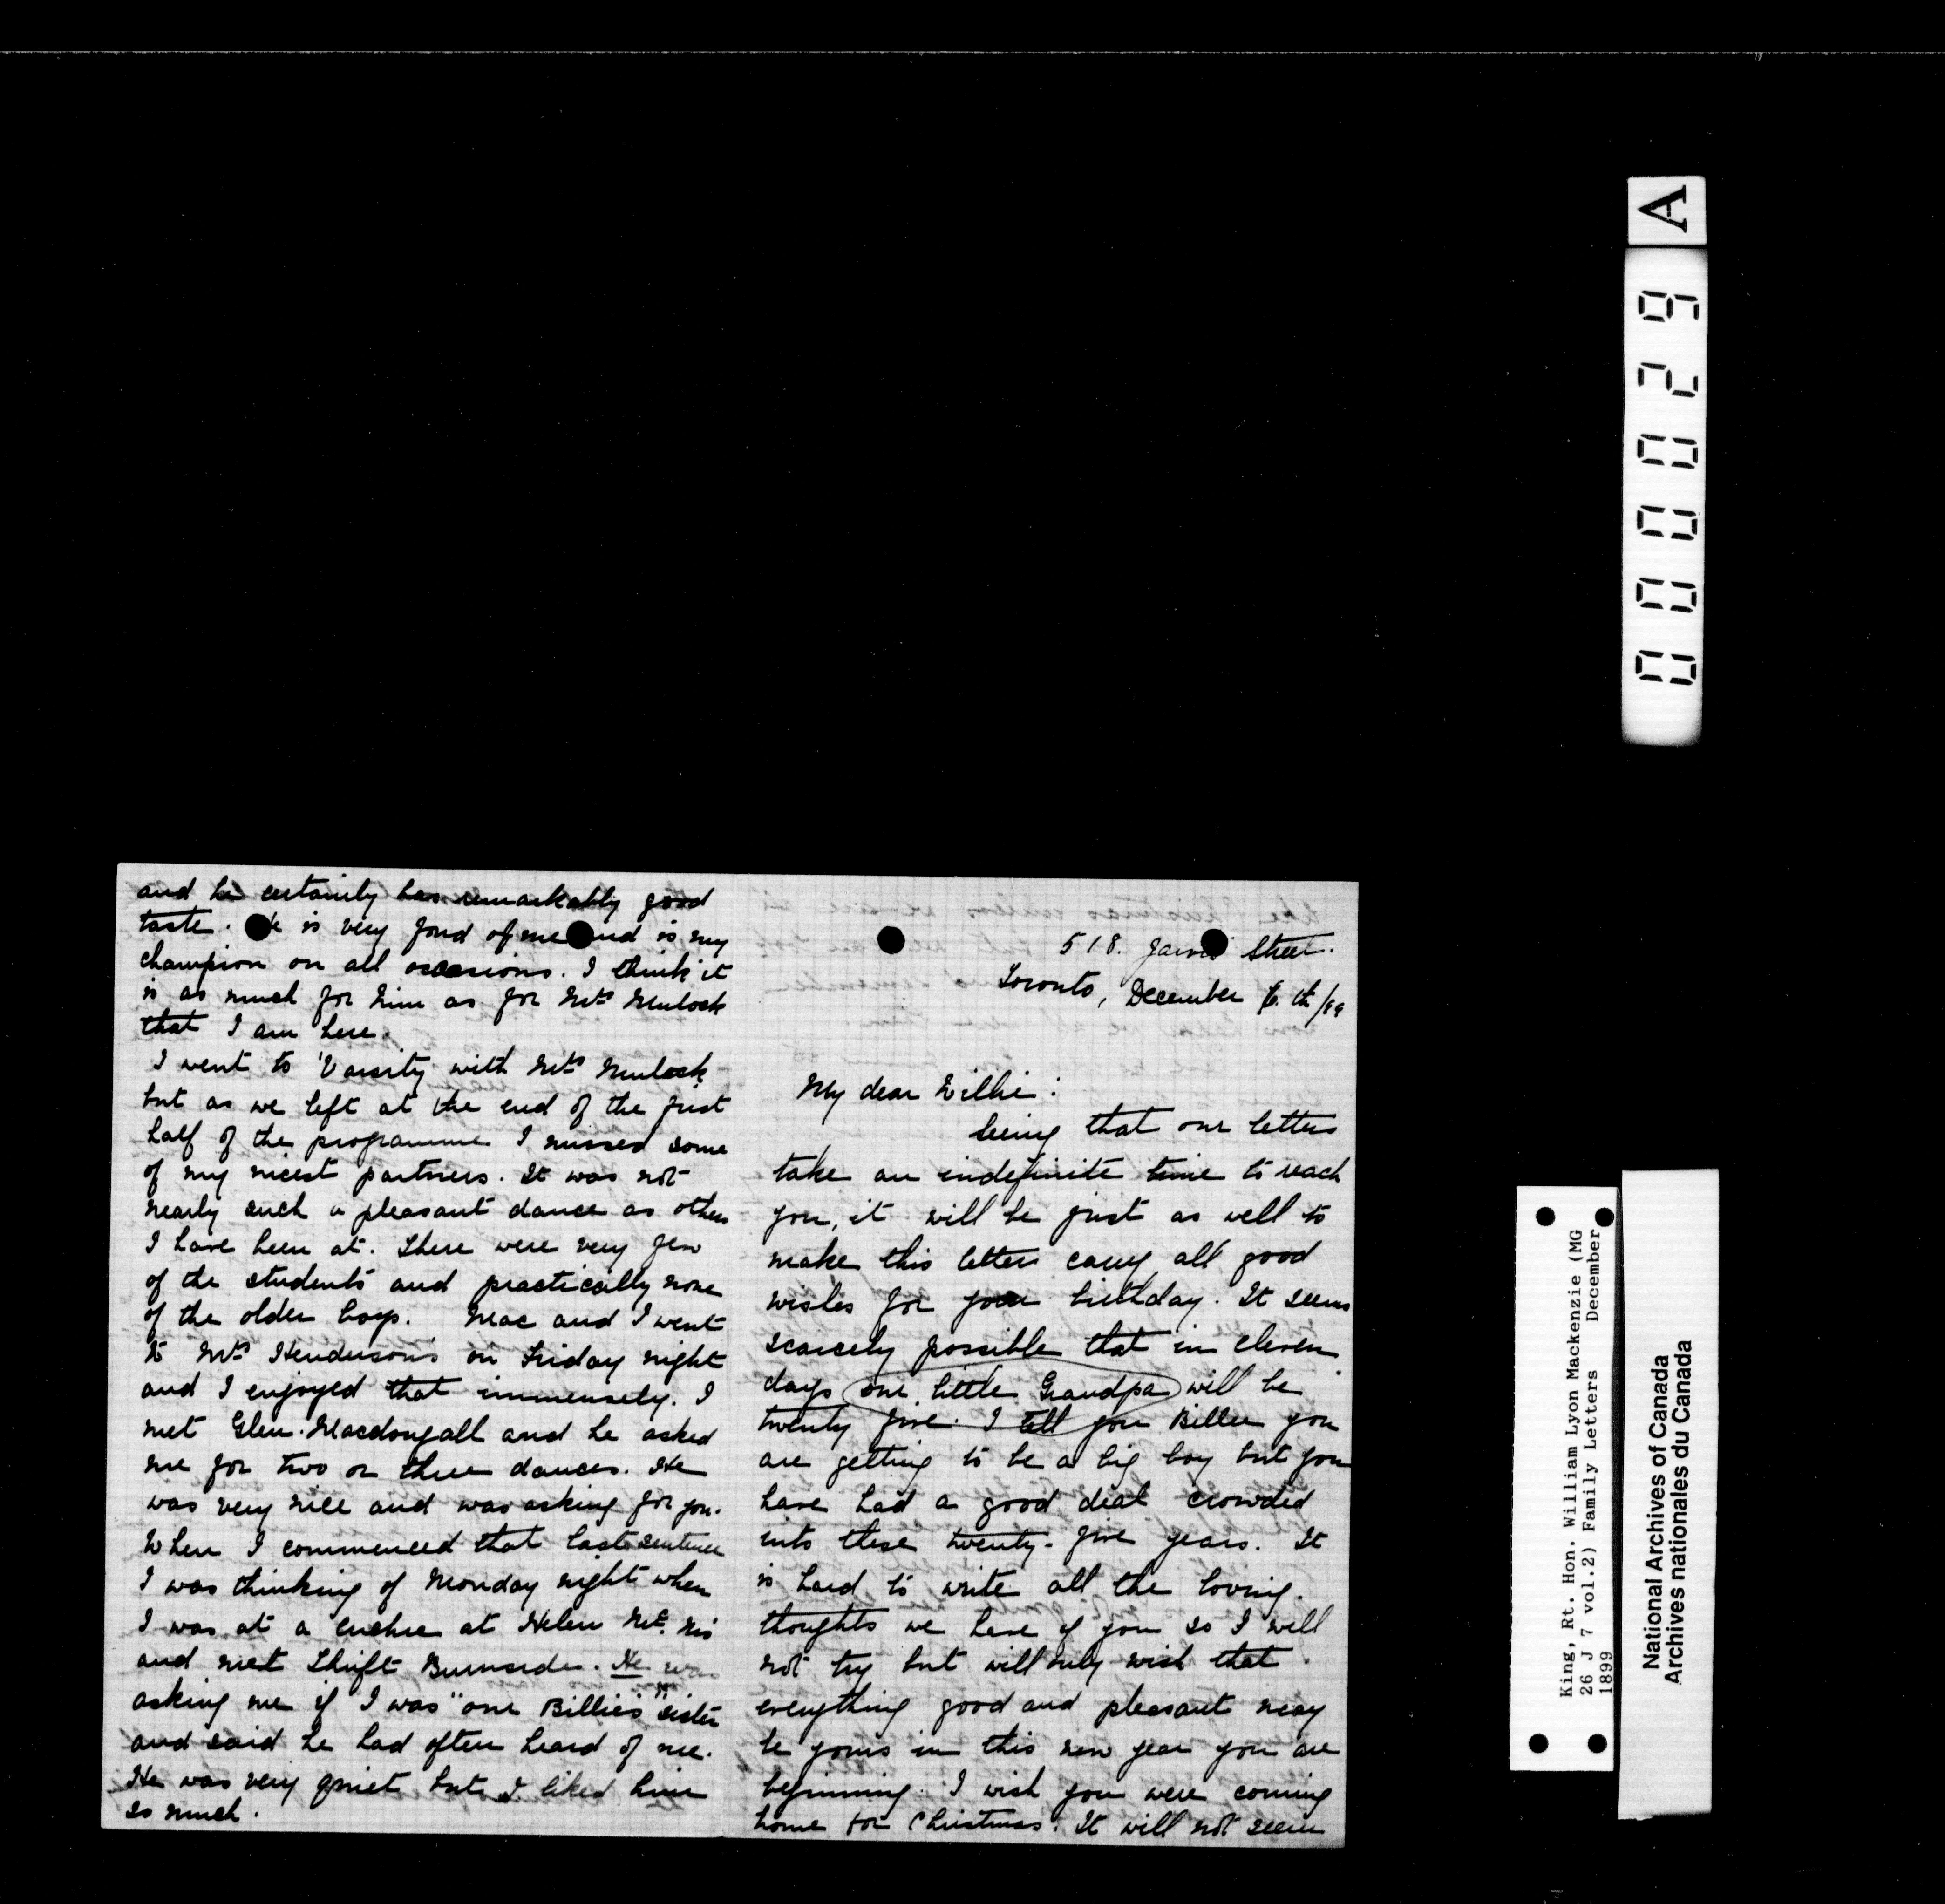 and he certainly has remarkably good
taste. He is very fond of me and is my
champion on all occasions. I think it
is as much for him as for Mrs Mulock
that I am here.
I went to 'Varsity with Mrs Mulock
but as we left at the end of the first
half of the programme I missed some
of my nicest partners. It was not
nearly such a pleasant dance as others
I have been at. There were very few
of the students and practically none
of the older boys. Mac and I went
to Mrs Henderson's on Friday night
and I enjoyed that immensely. I
met Glen Macdougall and he asked
me for two or three dances. He
was very nice and was asking for you.
When I commenced that last sentence
I was thinking of Monday night when
I was at a euchre at Helen
and met Thrift Burnside. He was
asking me if I was "our Billie's" sister
and said he had often heard of me.
He was very quiet but I liked him
so much.
518. Jarvis Street.
Toronto, December 6. th/99
My dear Willie:
Seeing that our letters
take an indefinite time to reach
you, it will be just as well to
make this letter carry all good
wishes for your birthday. It seems
scarcely possible that in eleven
days our little Grandpa will be
twenty five. I tell you Billie you
are getting to be a big boy but you
have had a good deal crowded
into these twenty-five years. It
is hard to write all the loving
thoughts we have of you so I will
not try but will only wish that
everything good and pleasant may
be yours in this new year you are
beginning. I wish you were coming
home for Christmas. It will not seem
A
000029
King, Rt. Hon. William Lyon Mackenzie (MG
26 J 7 vol.2) Family Letters December
1899
National Archives of Canada
Archives nationales du Canada